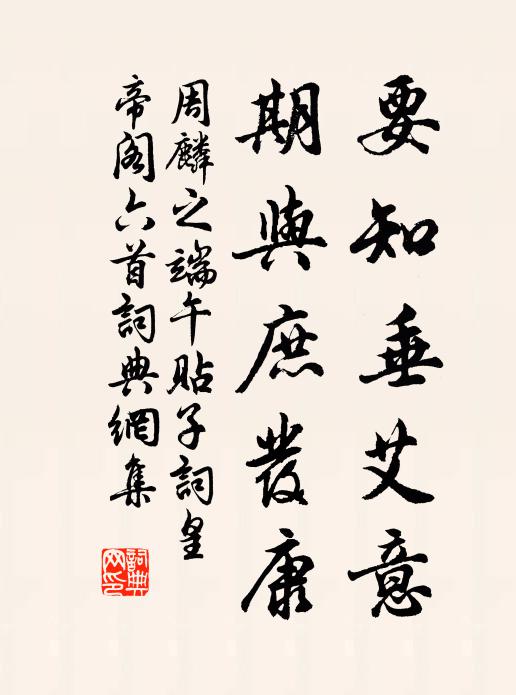 要知垂艾意
期與庶發康
周麟之端午貼子詞皇
帝閣六首詞典網集
詞典
网印